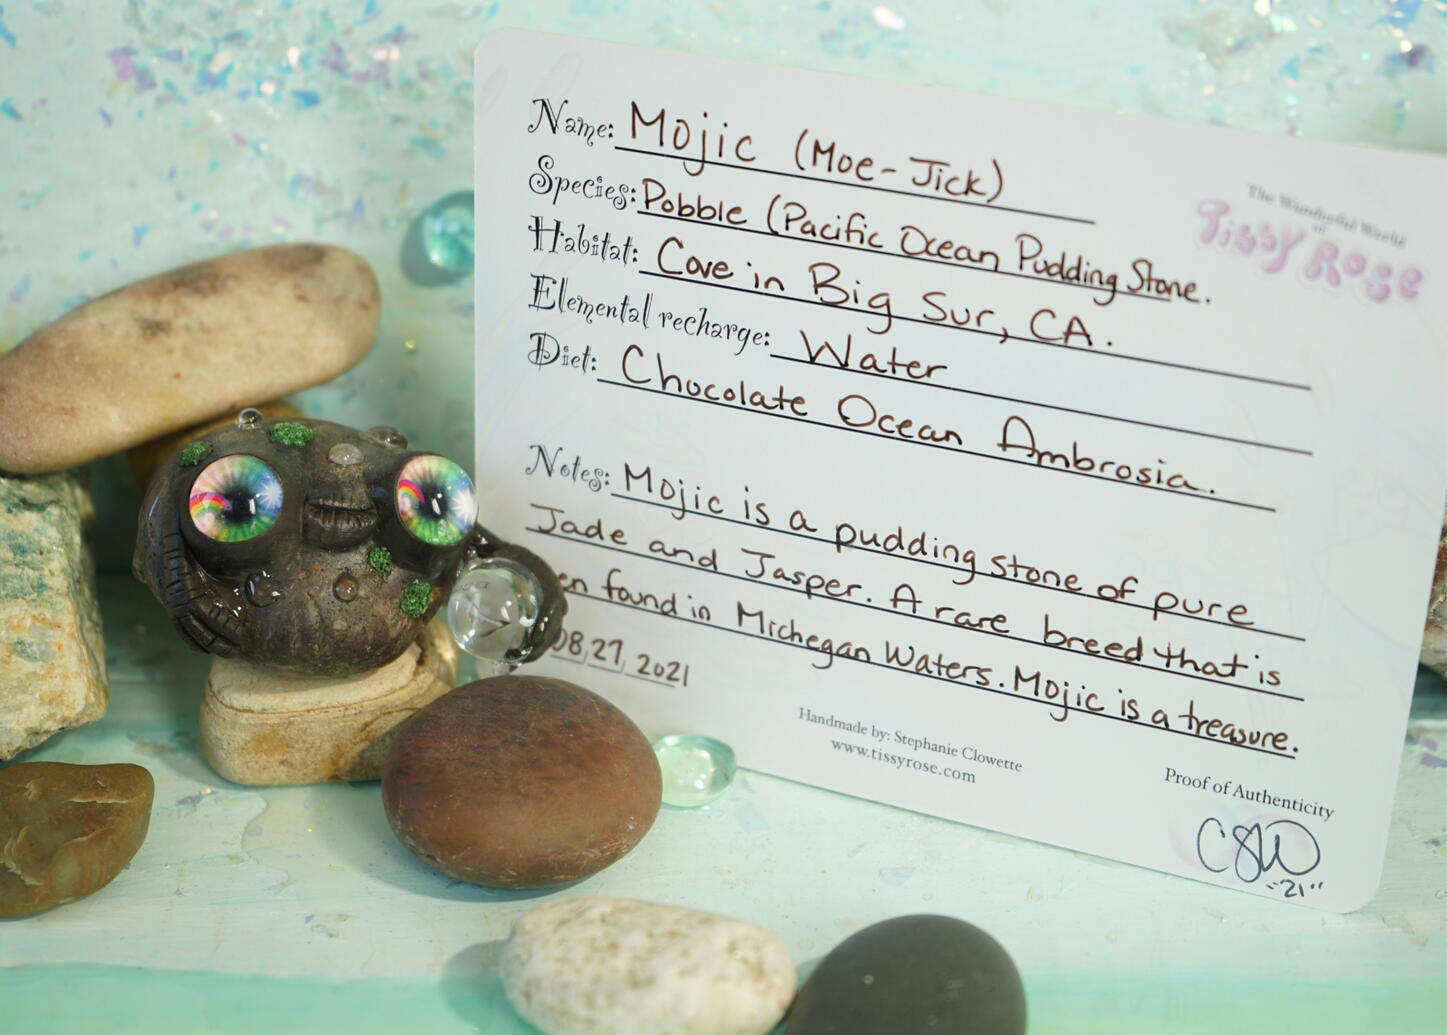 Name: Mojic (Moe-Jick)
The Wonderful World
of
Tissy Rose
Species: Pobble (Pacific Ocean Pudding Stone.
Habitat: Cove in Big Sur, CA.
Elemental recharge: Water
Diet: Chocolate Ocean Ambrosia.
Notes: Mojic is a pudding stone of pure
Jade and Jasper. A rare breed that is
en found in Michegan Waters. Mojic is a treasure.
08,27,2021
Handmade by: Stephanie Clowette
www.tissyrose.com
Proof of Authenticity
CSW
"21"